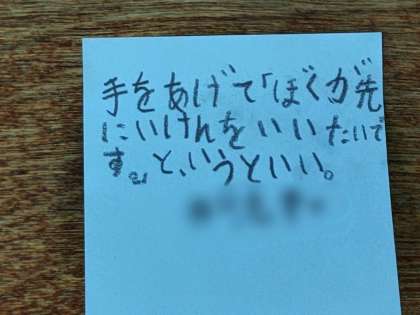 手をあげて「ぼくが先
にいけんをいいたいで
す。」と、いうといい。